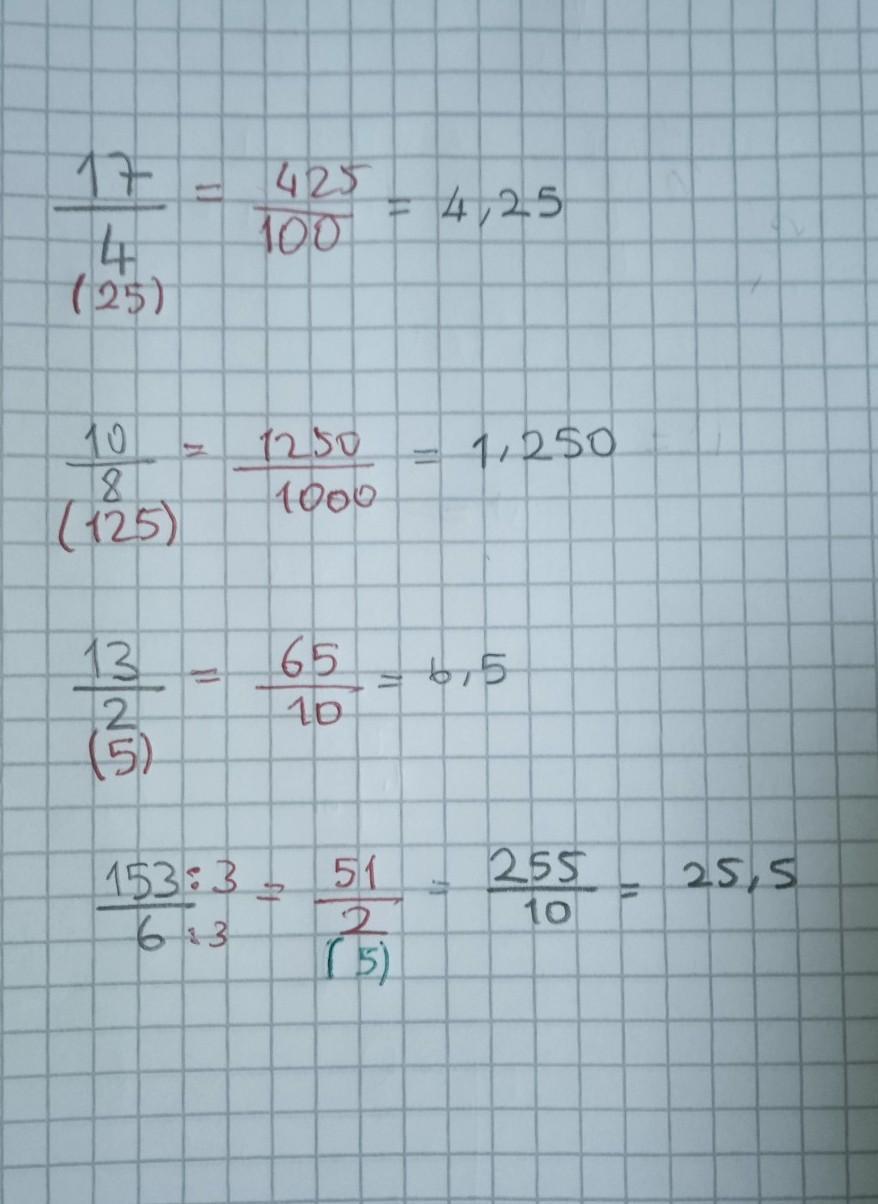 17/4 = 425/100 = 4,25
(25)
10/8 = 1250/1000 = 1,250
(125)
13/2 = 65/10 = 6,5
(5)
153:3/6:3 = 51/2 = 255/10 = 25,5
(5)